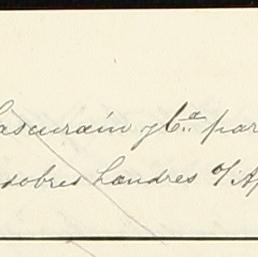 Lascurain y Ca. par
sobres Londres o/ Ap